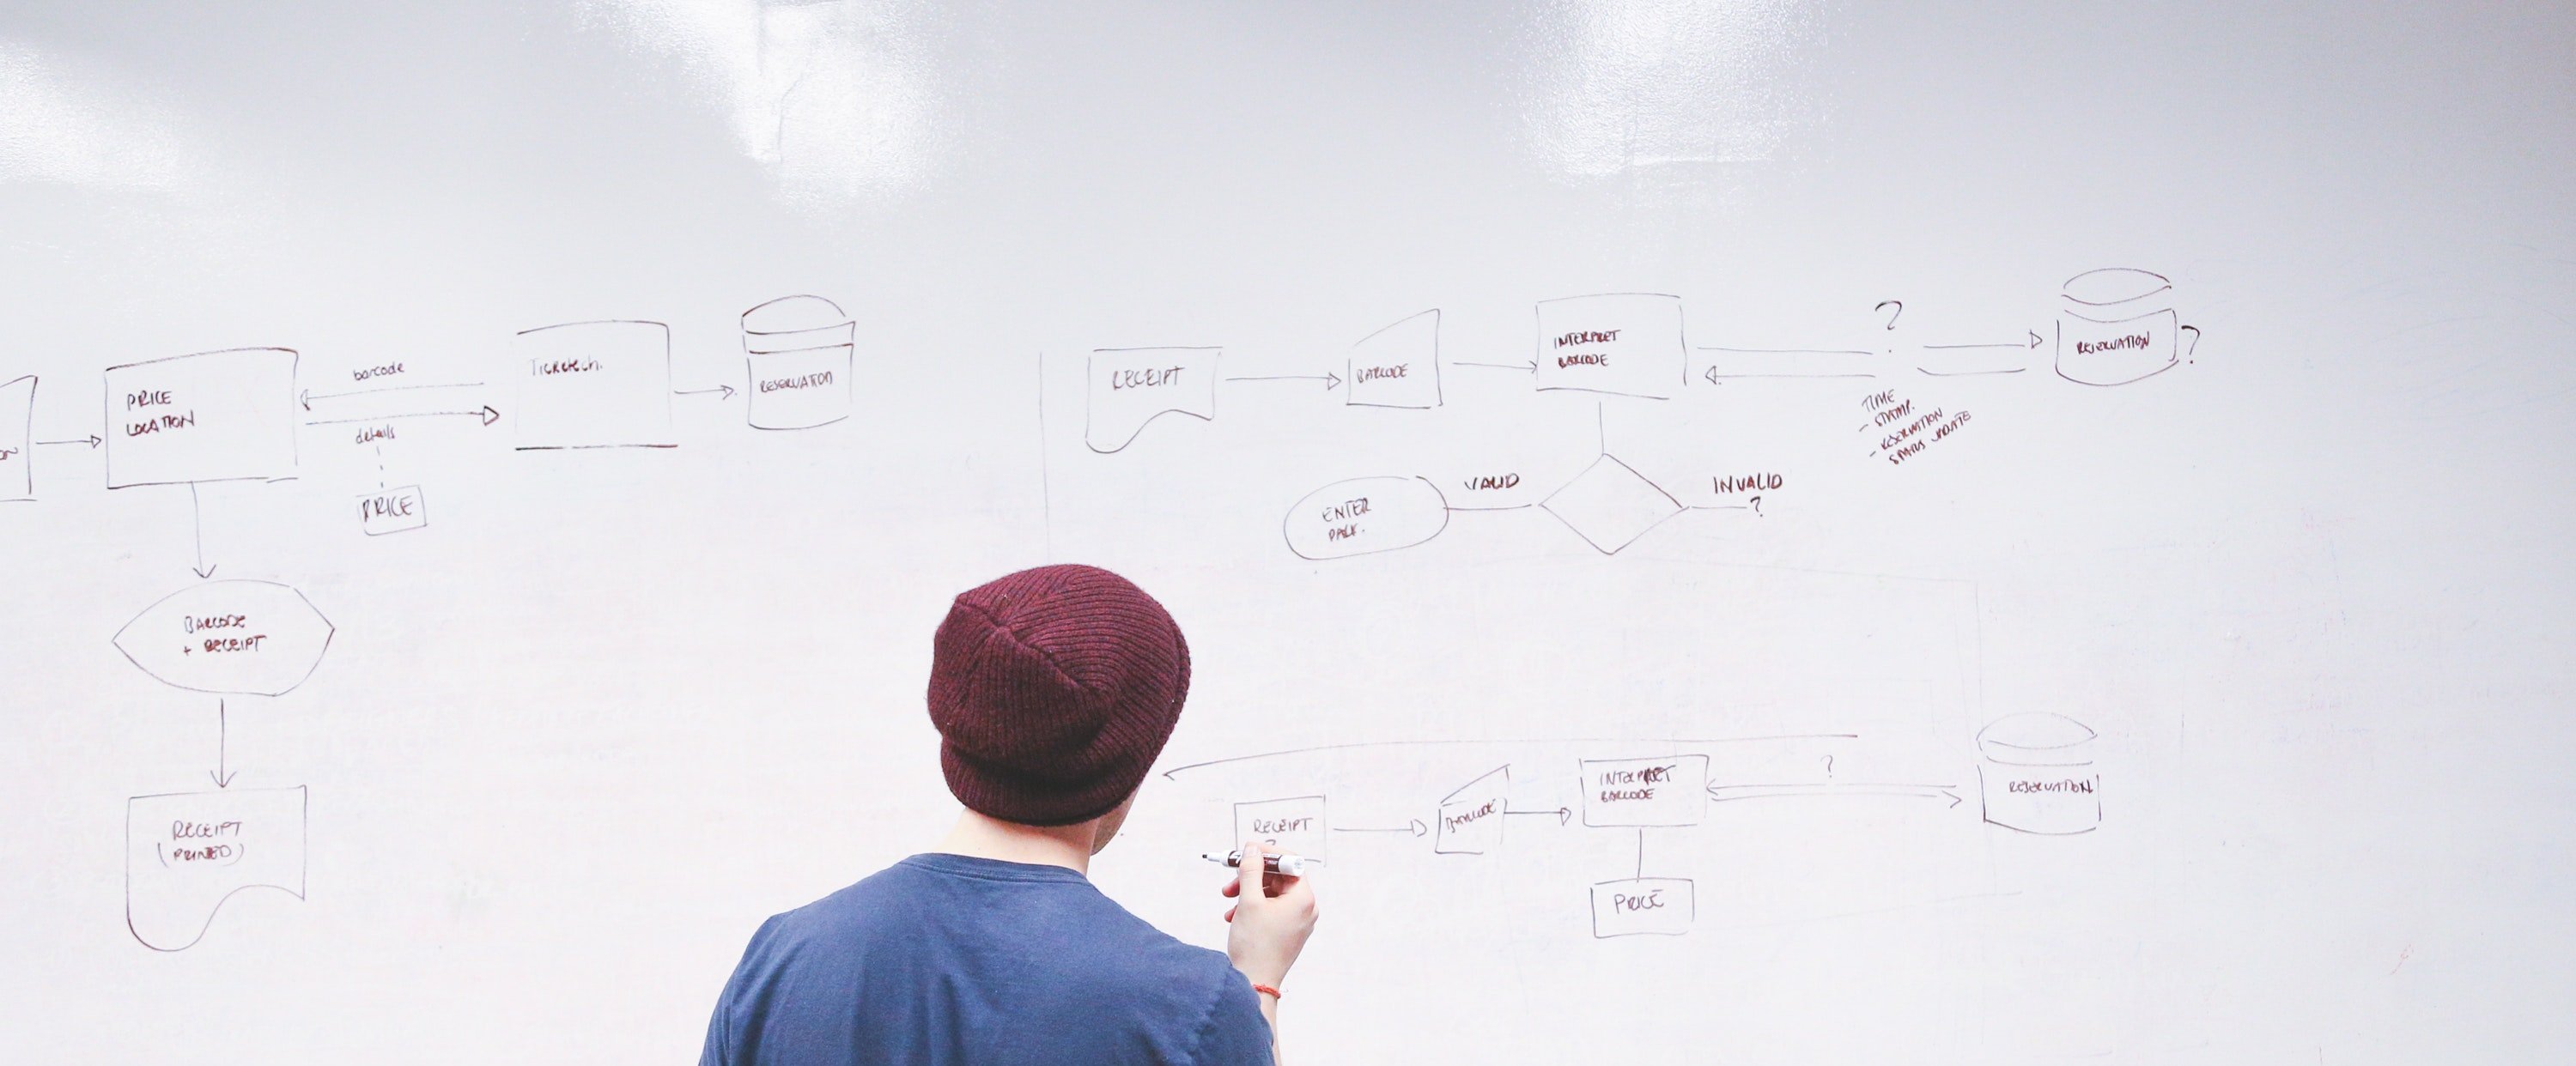 ON
PRICE
LOCATION
barcode
details
PRICE
Ticketech.
RESERVATION
BARCODE
+ RECEIPT
RECEIPT
(PRINTED)
RECEIPT
BARCODE
INTERPRET
BARCODE
?
TIME
- STAMP.
- RESERVATION
STATUS UPDATE
RESERVATION
?
VALID
INVALID
?
ENTER
PARK.
RECEIPT
?
BARCODE
INTERPRET
BARCODE
?
RESERVATION
PRICE